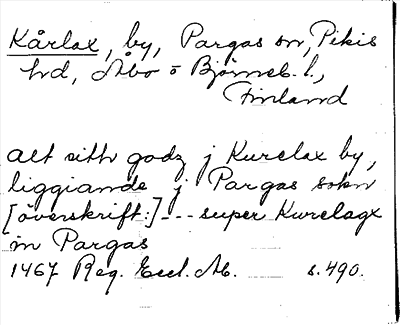 Kårlax, by, Pargas sn, Pikis
hd, Åbo o Björneb. l.,
Finland
alt sith godz j Kurelax by,
liggiande j Pargas sokn
[överskrift:] --- super Kurelagx
in Pargas
1467 Reg. Eccl. Ab. s. 490.